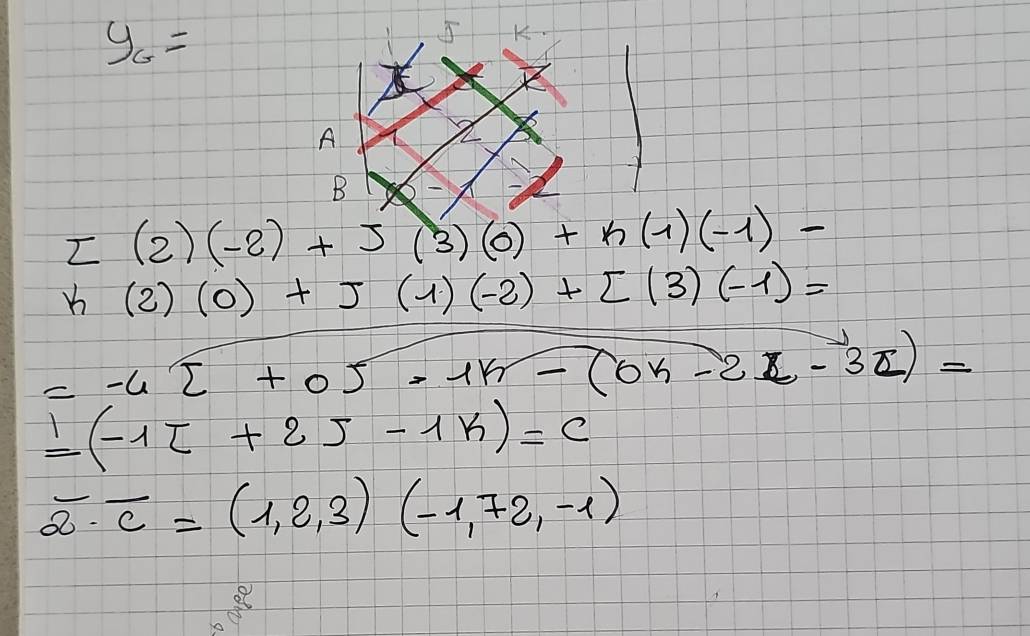 y_G =
i J K
I J K
A 1 2 3
B 0 -1 -2
I (2)(-2) + J (3)(0) + K(1)(-1) -
K (2)(0) + J (1)(-2) + I (3)(-1) =
= -4 I + 0J - 1K - (0K - 2 - 3I) =
= (-1I + 2J - 1K) = C
(1,2,3) (-1,+2,-1)